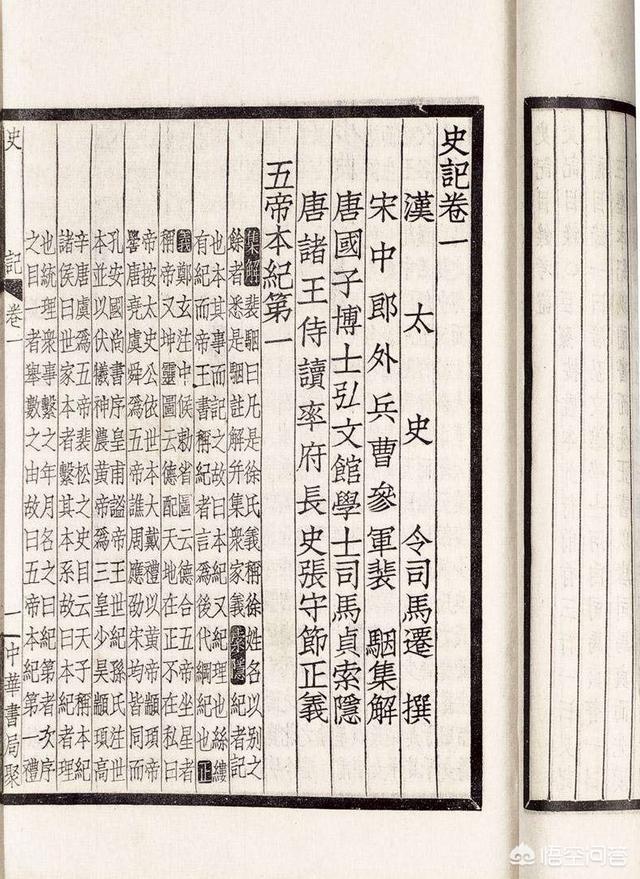 史記卷一
漢太史令司馬遷撰
宋中郎外兵曹參軍裴駰集解
唐國子博士弘文館學士司馬貞索隱
唐諸王侍讀率府長史張守節正義
五帝本紀第一
集解裴駰曰凡是徐氏義稱徐姓名以別之
餘者悉是駰註解并集衆家義索隱紀者記
也本其事而記之故曰本紀又紀理也絲縷
有紀而帝王書稱紀者言爲後代綱紀也正
義鄭玄注中候勑省圖云德合五帝坐星者
稱帝又坤靈圖云德配天地在正不在私曰
帝按太史公依世本大戴禮以黃帝顓頊帝
嚳唐堯虞舜爲五帝譙周應劭宋均皆同而
孔安國尚書序皇甫謐帝王世紀孫氏注世
本並以伏犧神農黃帝爲三皇少昊顓頊高
辛唐虞爲五帝裴松之史目云天子稱本紀
諸侯曰世家本者繫其本系故曰本紀者理
也統理衆事繫之年月名之曰紀第者次序
之目一者舉數之由故曰五帝本紀第一禮
史記 卷一 一 中華書局聚
悟空问答